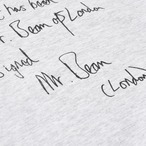 has been
Mr. Bean of London
signed
Mr. Bean
(London)